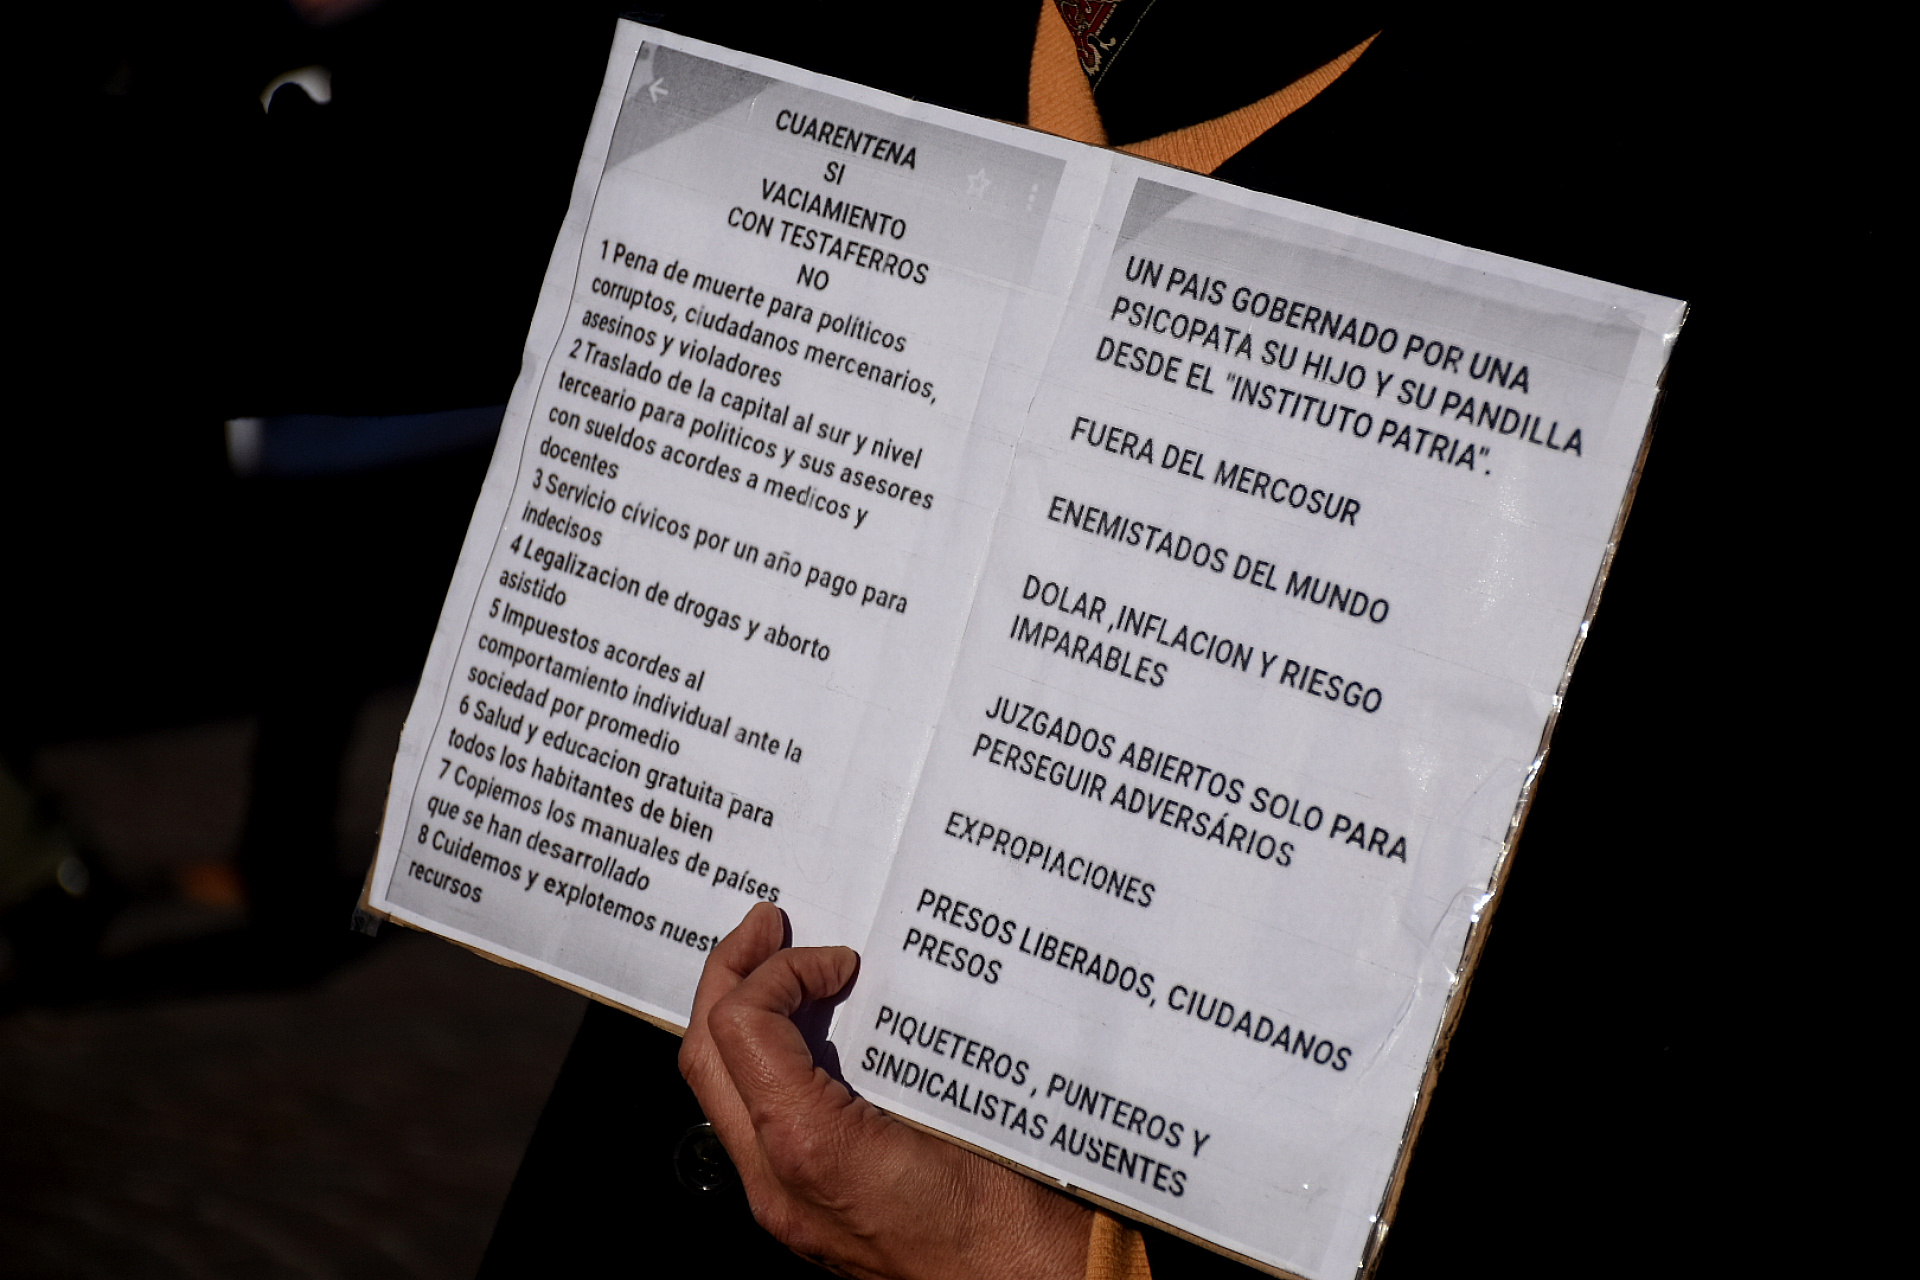 CUARENTENA
SI
VACIAMIENTO
CON TESTAFERROS
NO
1 Pena de muerte para políticos
corruptos, ciudadanos mercenarios,
asesinos y violadores
2 Traslado de la capital al sur y nivel
terceario para políticos y sus asesores
con sueldos acordes a medicos y
docentes
3 Servicio cívicos por un año pago para
indecisos
4 Legalizacion de drogas y aborto
asistido
5 Impuestos acordes al
comportamiento individual ante la
sociedad por promedio
6 Salud y educacion gratuita para
todos los habitantes de bien
7 Copiemos los manuales de países
que se han desarrollado
8 Cuidemos y explotemos nuest
recursos
UN PAIS GOBERNADO POR UNA
PSICOPATA SU HIJO Y SU PANDILLA
DESDE EL "INSTITUTO PATRIA".
FUERA DEL MERCOSUR
ENEMISTADOS DEL MUNDO
DOLAR ,INFLACION Y RIESGO
IMPARABLES
JUZGADOS ABIERTOS SOLO PARA
PERSEGUIR ADVERSÁRIOS
EXPROPIACIONES
PRESOS LIBERADOS, CIUDADANOS
PRESOS
PIQUETEROS , PUNTEROS Y
SINDICALISTAS AUSENTES